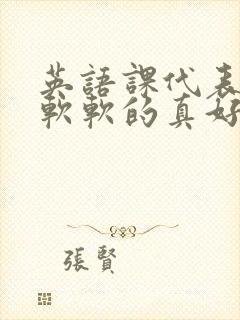 英語課代表
軟軟的真好
張賢